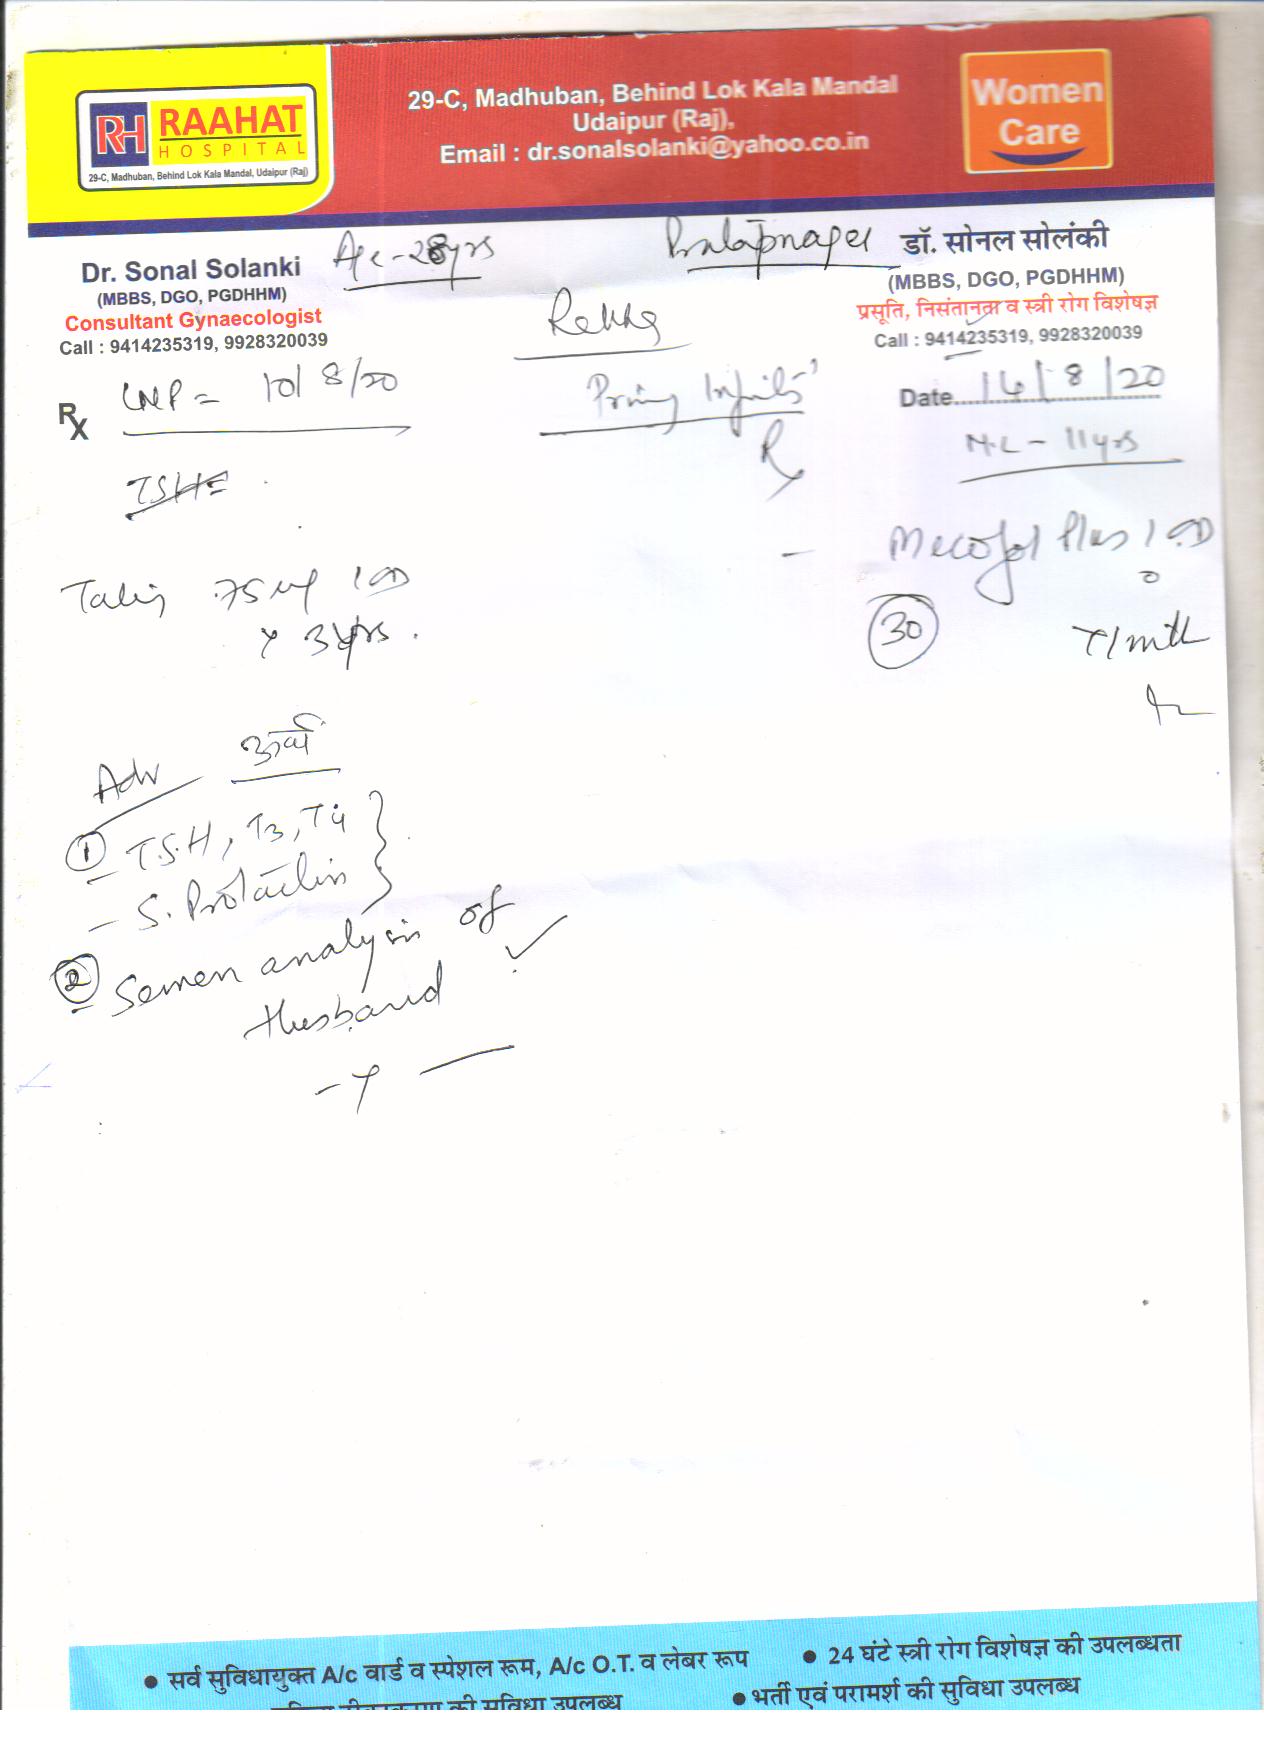 RH RAAHAT
HOSPITAL
29-C, Madhuban, Behind Lok Kala Mandal, Udaipur (Raj)
29-C, Madhuban, Behind Lok Kala Mandal
Udaipur (Raj),
Email : dr.sonalsolanki@yahoo.co.in
Women
Care
Dr. Sonal Solanki
(MBBS, DGO, PGDHHM)
Consultant Gynaecologist
Call : 9414235319, 9928320039
Age - 28yrs
Pratapnager
डॉ. सोनल सोलंकी
(MBBS, DGO, PGDHHM)
प्रसूति, निसंतानता व स्त्री रोग विशेषज्ञ
Call : 9414235319, 9928320039
Rekha
Rx
LMP = 10/8/20
Date 14/8/20
M.L - 11yrs
Rx
TSH =
Taking 75 1 OD
x 3yrs.
- Mecofol Plus 1 OD
30
x 1 mth
Adv
① T.S.H, T3, T4
- S. Prolactin
② Semen analysis of
Husband
● सर्व सुविधायुक्त A/c वार्ड व स्पेशल रूम, A/c O.T. व लेबर रूप
● 24 घंटे स्त्री रोग विशेषज्ञ की उपलब्धता
की सुविधा उपलब्ध
● भर्ती एवं परामर्श की सुविधा उपलब्ध